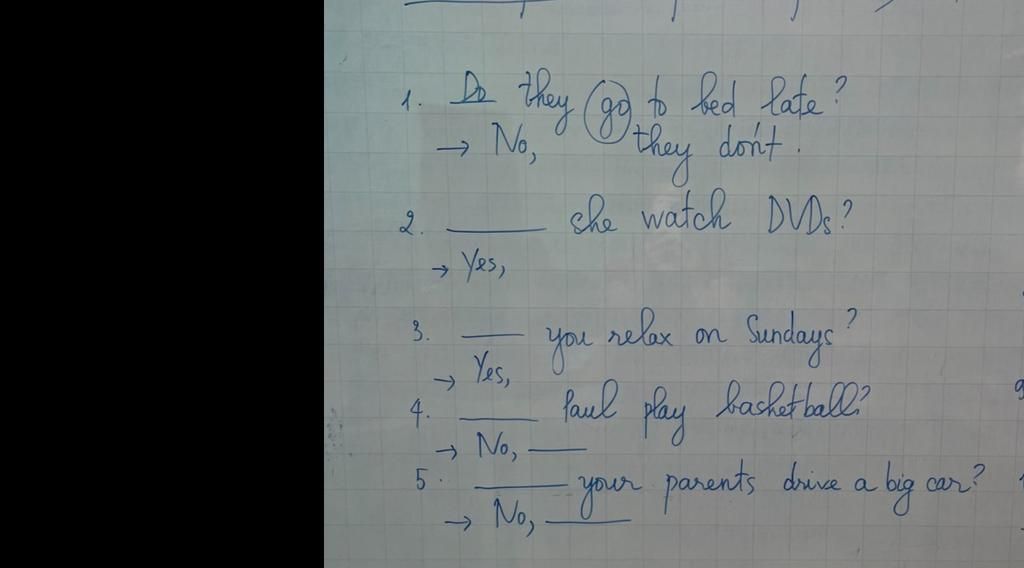 1. Do they go to bed late?
→ No, they don't.
2. ______ she watch DVDs?
→ Yes,
3. ____ you relax on Sundays?
→ Yes,
4. _____ Paul play basketball?
→ No, ____
5. ______ your parents drive a big car?
→ No, _____